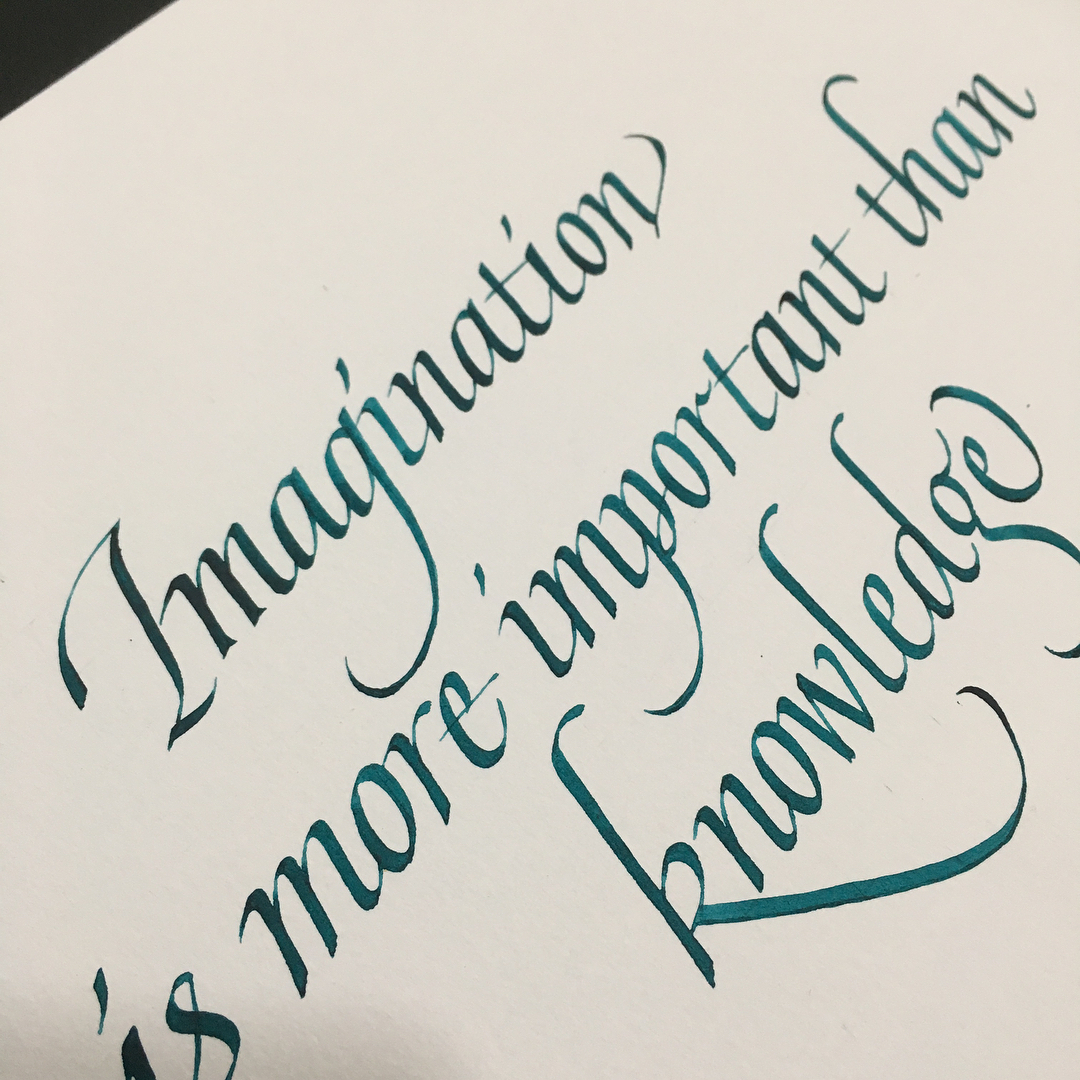 Imagination
is more important than
knowledge